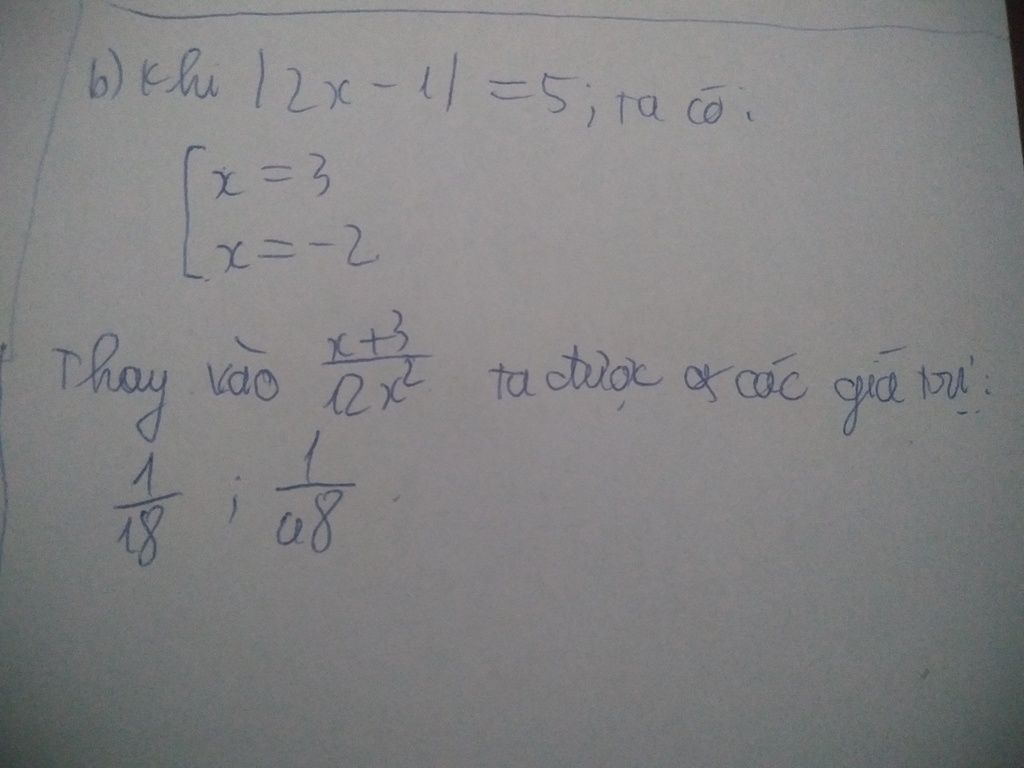 b) Khi |2x - 1| = 5; ta có:
x = 3
x = -2
Thay vào x+3/12x² ta được các giá trị:
1/18 ; 1/48